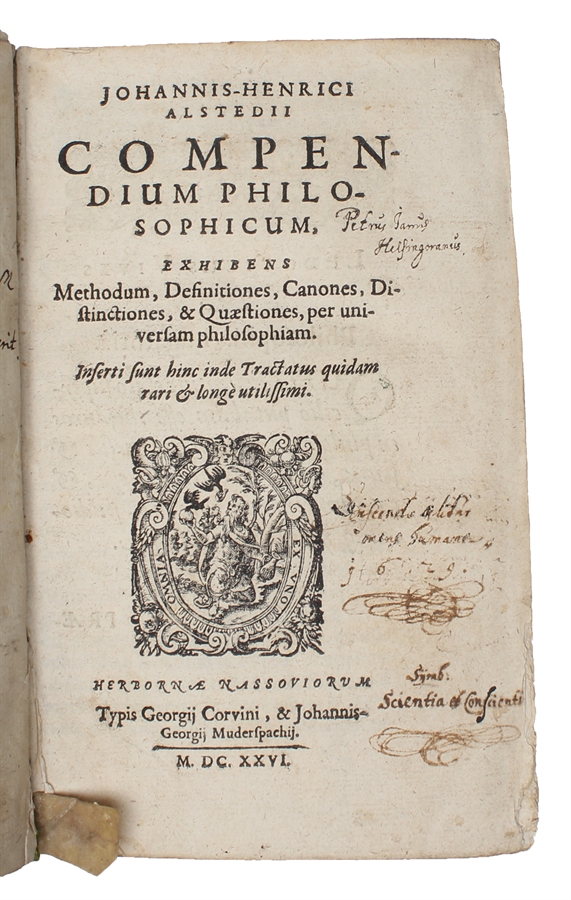 JOHANNIS-HENRICI
ALSTEDII
COMPEN-
DIUM PHILO-
SOPHICUM,
Petrus Janus
Helsingoranus
EXHIBENS
Methodum, Definitiones, Canones, Di-
ſtinctiones, & Quæſtiones, per uni-
verſam philoſophiam.
Inſerti ſunt hinc inde Tractatus quidam
rari & longè utiliſſimi.
OMNIA EX UNO
humana
HERBORNÆ NASSOVIORUM
Symb:
Scientia et Conscienti
Typis Georgij Corvini, & Johannis-
Georgij Muderſpachij.
M. DC. XXVI.